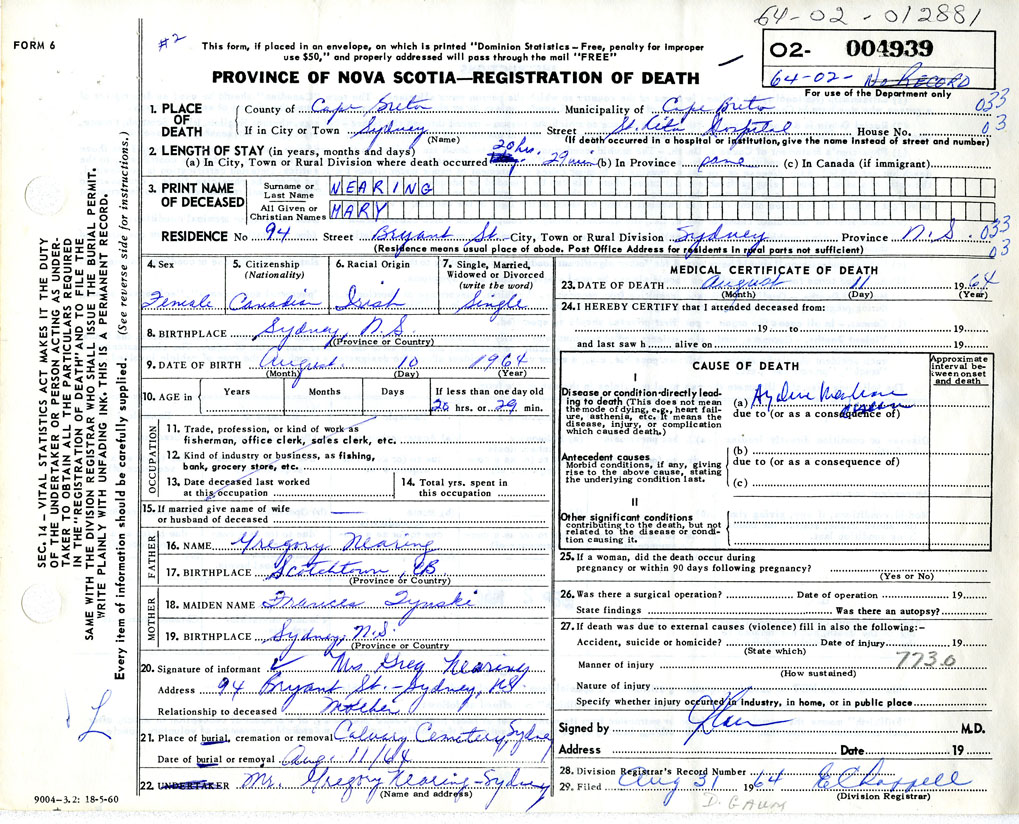 64-02-012881
FORM 6
#2
This form, if placed in an envelope, on which is printed "Dominion Statistics – Free, penalty for improper
use $50," and properly addressed will pass through the mail "FREE"
PROVINCE OF NOVA SCOTIA—REGISTRATION OF DEATH
02- 004939
64-02- No RECORD
For use of the Department only
1. PLACE OF DEATH
County of Cape Breton Municipality of Cape Breton 033
If in City or Town Sydney (Name) Street St. Rita Hospital House No. 03
(If death occurred in a hospital or institution, give the name instead of street and number)
2. LENGTH OF STAY (in years, months and days)
(a) In City, Town or Rural Division where death occurred 20 hrs. 29 min (b) In Province same (c) In Canada (if immigrant)
3. PRINT NAME OF DECEASED
Surname or Last Name NEARING
All Given or Christian Names MARY
RESIDENCE No 94 Street Bryant St. City, Town or Rural Division Sydney Province N.S. 033
03
(Residence means usual place of abode. Post Office Address for residents in rural parts not sufficient)
4. Sex Female
5. Citizenship (Nationality) Canadian
6. Racial Origin Irish
7. Single, Married, Widowed or Divorced (write the word) Single
8. BIRTHPLACE Sydney, N.S.
(Province or Country)
9. DATE OF BIRTH August 10 1964
(Month) (Day) (Year)
10. AGE in Years Months Days If less than one day old
20 hrs. or 29 min.
OCCUPATION
11. Trade, profession, or kind of work as
fisherman, office clerk, sales clerk, etc.
12. Kind of industry or business, as fishing,
bank, grocery store, etc.
13. Date deceased last worked
at this occupation
14. Total yrs. spent in
this occupation
15. If married give name of wife
or husband of deceased —
FATHER
16. NAME Gregory Nearing
17. BIRTHPLACE Scotchtown, CB
(Province or Country)
MOTHER
18. MAIDEN NAME Frances Tynski
19. BIRTHPLACE Sydney, N.S.
(Province or Country)
20. Signature of informant Mrs Greg Nearing
Address 94 Bryant St. - Sydney, NS
Relationship to deceased Mother
21. Place of burial, cremation or removal Calvary Cemetery Sydney
Date of burial or removal Aug. 11/64
22. UNDERTAKER Mr. Gregory Nearing - Sydney
(Name and address)
9004–3.2: 18-5-60
MEDICAL CERTIFICATE OF DEATH
23. DATE OF DEATH August 11 1964
(Month) (Day) (Year)
24. I HEREBY CERTIFY that I attended deceased from:
19 to 19
and last saw h alive on 19
CAUSE OF DEATH
Approximate interval between onset and death
I
Disease or condition directly leading to death (This does not mean the mode of dying, e.g., heart failure, asthenia, etc. It means the disease, injury, or complication which caused death.)
(a) Hyaline Membrane
due to (or as a consequence of)
Antecedent causes
Morbid conditions, if any, giving rise to the above cause, stating the underlying condition last.
(b)
due to (or as a consequence of)
(c)
II
Other significant conditions
contributing to the death, but not related to the disease or condition causing it.
25. If a woman, did the death occur during
pregnancy or within 90 days following pregnancy?
(Yes or No)
26. Was there a surgical operation? Date of operation 19
State findings Was there an autopsy?
27. If death was due to external causes (violence) fill in also the following:–
Accident, suicide or homicide? Date of injury 19
(State which)
773.0
Manner of injury
(How sustained)
Nature of injury
Specify whether injury occurred in industry, in home, or in public place
Signed by M.D.
Address Date 19
28. Division Registrar's Record Number
29. Filed Aug 31 1964 E C Chappell
(Division Registrar)
D. GAUM
SEC. 14 – VITAL STATISTICS ACT MAKES IT THE DUTY
OF THE UNDERTAKER OR PERSON ACTING AS UNDER-
TAKER TO OBTAIN ALL THE PARTICULARS REQUIRED
IN THE "REGISTRATION OF DEATH" AND TO FILE THE
SAME WITH THE DIVISION REGISTRAR WHO SHALL ISSUE THE BURIAL PERMIT.
WRITE PLAINLY WITH UNFADING INK. THIS IS A PERMANENT RECORD.
Every item of information should be carefully supplied. (See reverse side for instructions.)